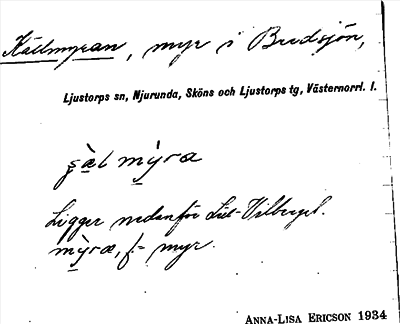 Källmyran, myr i Bredsjön,
Ljustorps sn, Njurunda, Sköns och Ljustorps tg, Västernorrl. l.
ʂæ̀l mỳra
Ligger nedanför Lill-Vilberget.
mỳræ, f. = myr.
ANNA-LISA ERICSON 1934